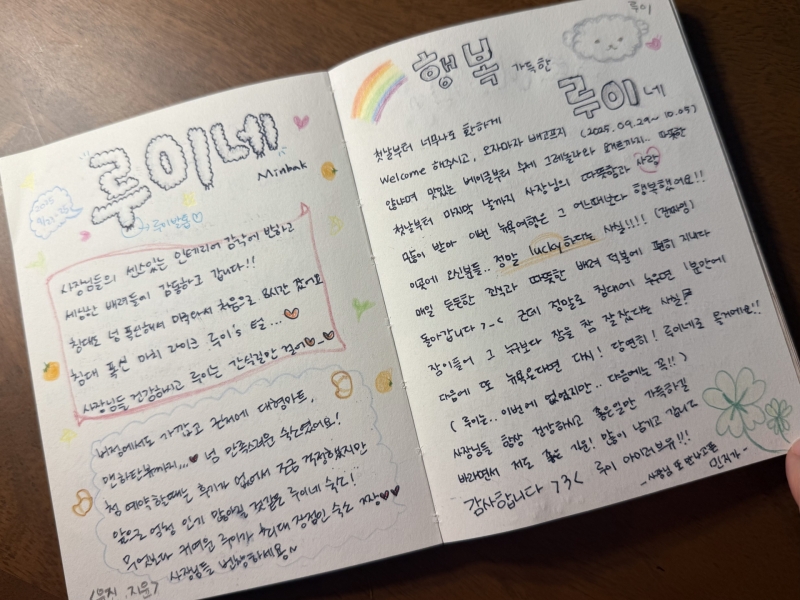 루이네
Minbak
2025
9/22-25
루이발톱♡
사장님들의 센스있는 인테리어 감각에 반하고
세심한 배려들에 감동하고 갑니다!!
침대도 넘 푹신해서 미국와서 처음으로 8시간 잤어요
침대 푹신 마치 라이크 루이's 털...♥
사장님들 건강하시고 루이는 간식길만 걸어♥_♥
버정에서도 가깝고 근처에 대형마트,
맨하탄뷰까지...♥ 넘 만족스러운 숙소였어요!
첨 예약할때는 후기가 없어서 조금 걱정했지만
앞으로 엄청 인기 많아질 것같은 루이네 숙소!
무엇보다 귀여운 루이가 최대 장점인 숙소 짱♥♥
사장님들 번창하세용~
루이
행복 가득한
루이네
첫날부터 너무나도 환하게 (2025.09.29~10.05)
welcome 해주시고, 오자마자 배고프지
않냐며 맛있는 베이글부터 수제 그래놀라와 요거트까지.. 따뜻한
첫날부터 마지막 날까지 사장님의 따뜻함과 사랑
많이 받아 이번 뉴욕여행은 그 어느때보다 행복했어요!!
이곳에 오신분들.. 정말 lucky하다는 사실!!!! (진짜임)
매일 든든한 간식과 따뜻한 배려 덕분에 편히 지내다
돌아갑니다 >_< 근데 정말로 침대에 누우면 1분안에
잠이들어 그 누구보다 잠을 참 잘 잤다는 사실
다음에 또 뉴욕온다면 다시! 당연히! 루이네로 올거에요!!
(루이는.. 이번에 없었지만.. 다음에는 꼭!!)
사장님들 항상 건강하시고 좋은일만 가득하길
바라면서 저도 좋은 기운! 많이 남기고 갑니다
감사합니다 >3< 루이 아이러브유!!!
-사장님 또 만나고픈
민지가-